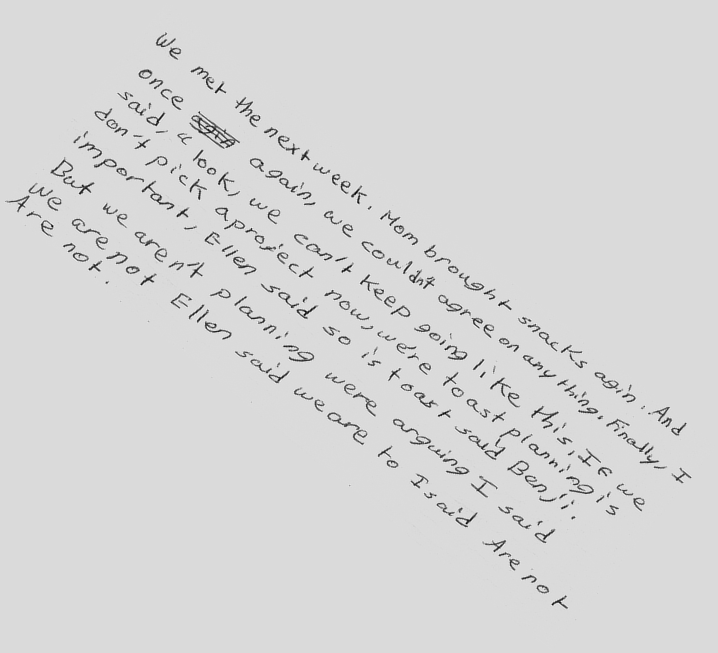 We met the next week. Mom brought snacks agin. And
once again, we couldn't agree on anything. Finally, I
said, "look, we can't keep going like this, If we
don't pick aproject now, we're toast planning is
important, Ellen said so is toast said Benji.
But we aren't planning were arguing I said
We are not Ellen said we are to I said Are not
Are not.